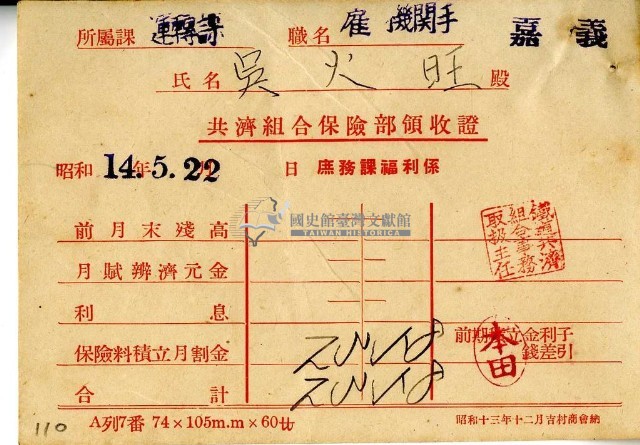 所屬課 運轉課 職名 雇 機関手 嘉義
氏名 吳火旺 殿
共濟組合保險部領收證
昭和 14.年5.22月 日 庶務課福利係
國史館臺灣文獻館
TAIWAN HISTORICA
前月末殘高
月賦辨濟元金
利息
保險料積立月割金
合計
鐵道共濟
組合事務
取扱主任
前期積立金利子
錢差引
本田
110
A列7番 74×105m.m×60廿
昭和十三年十二月吉村商會納